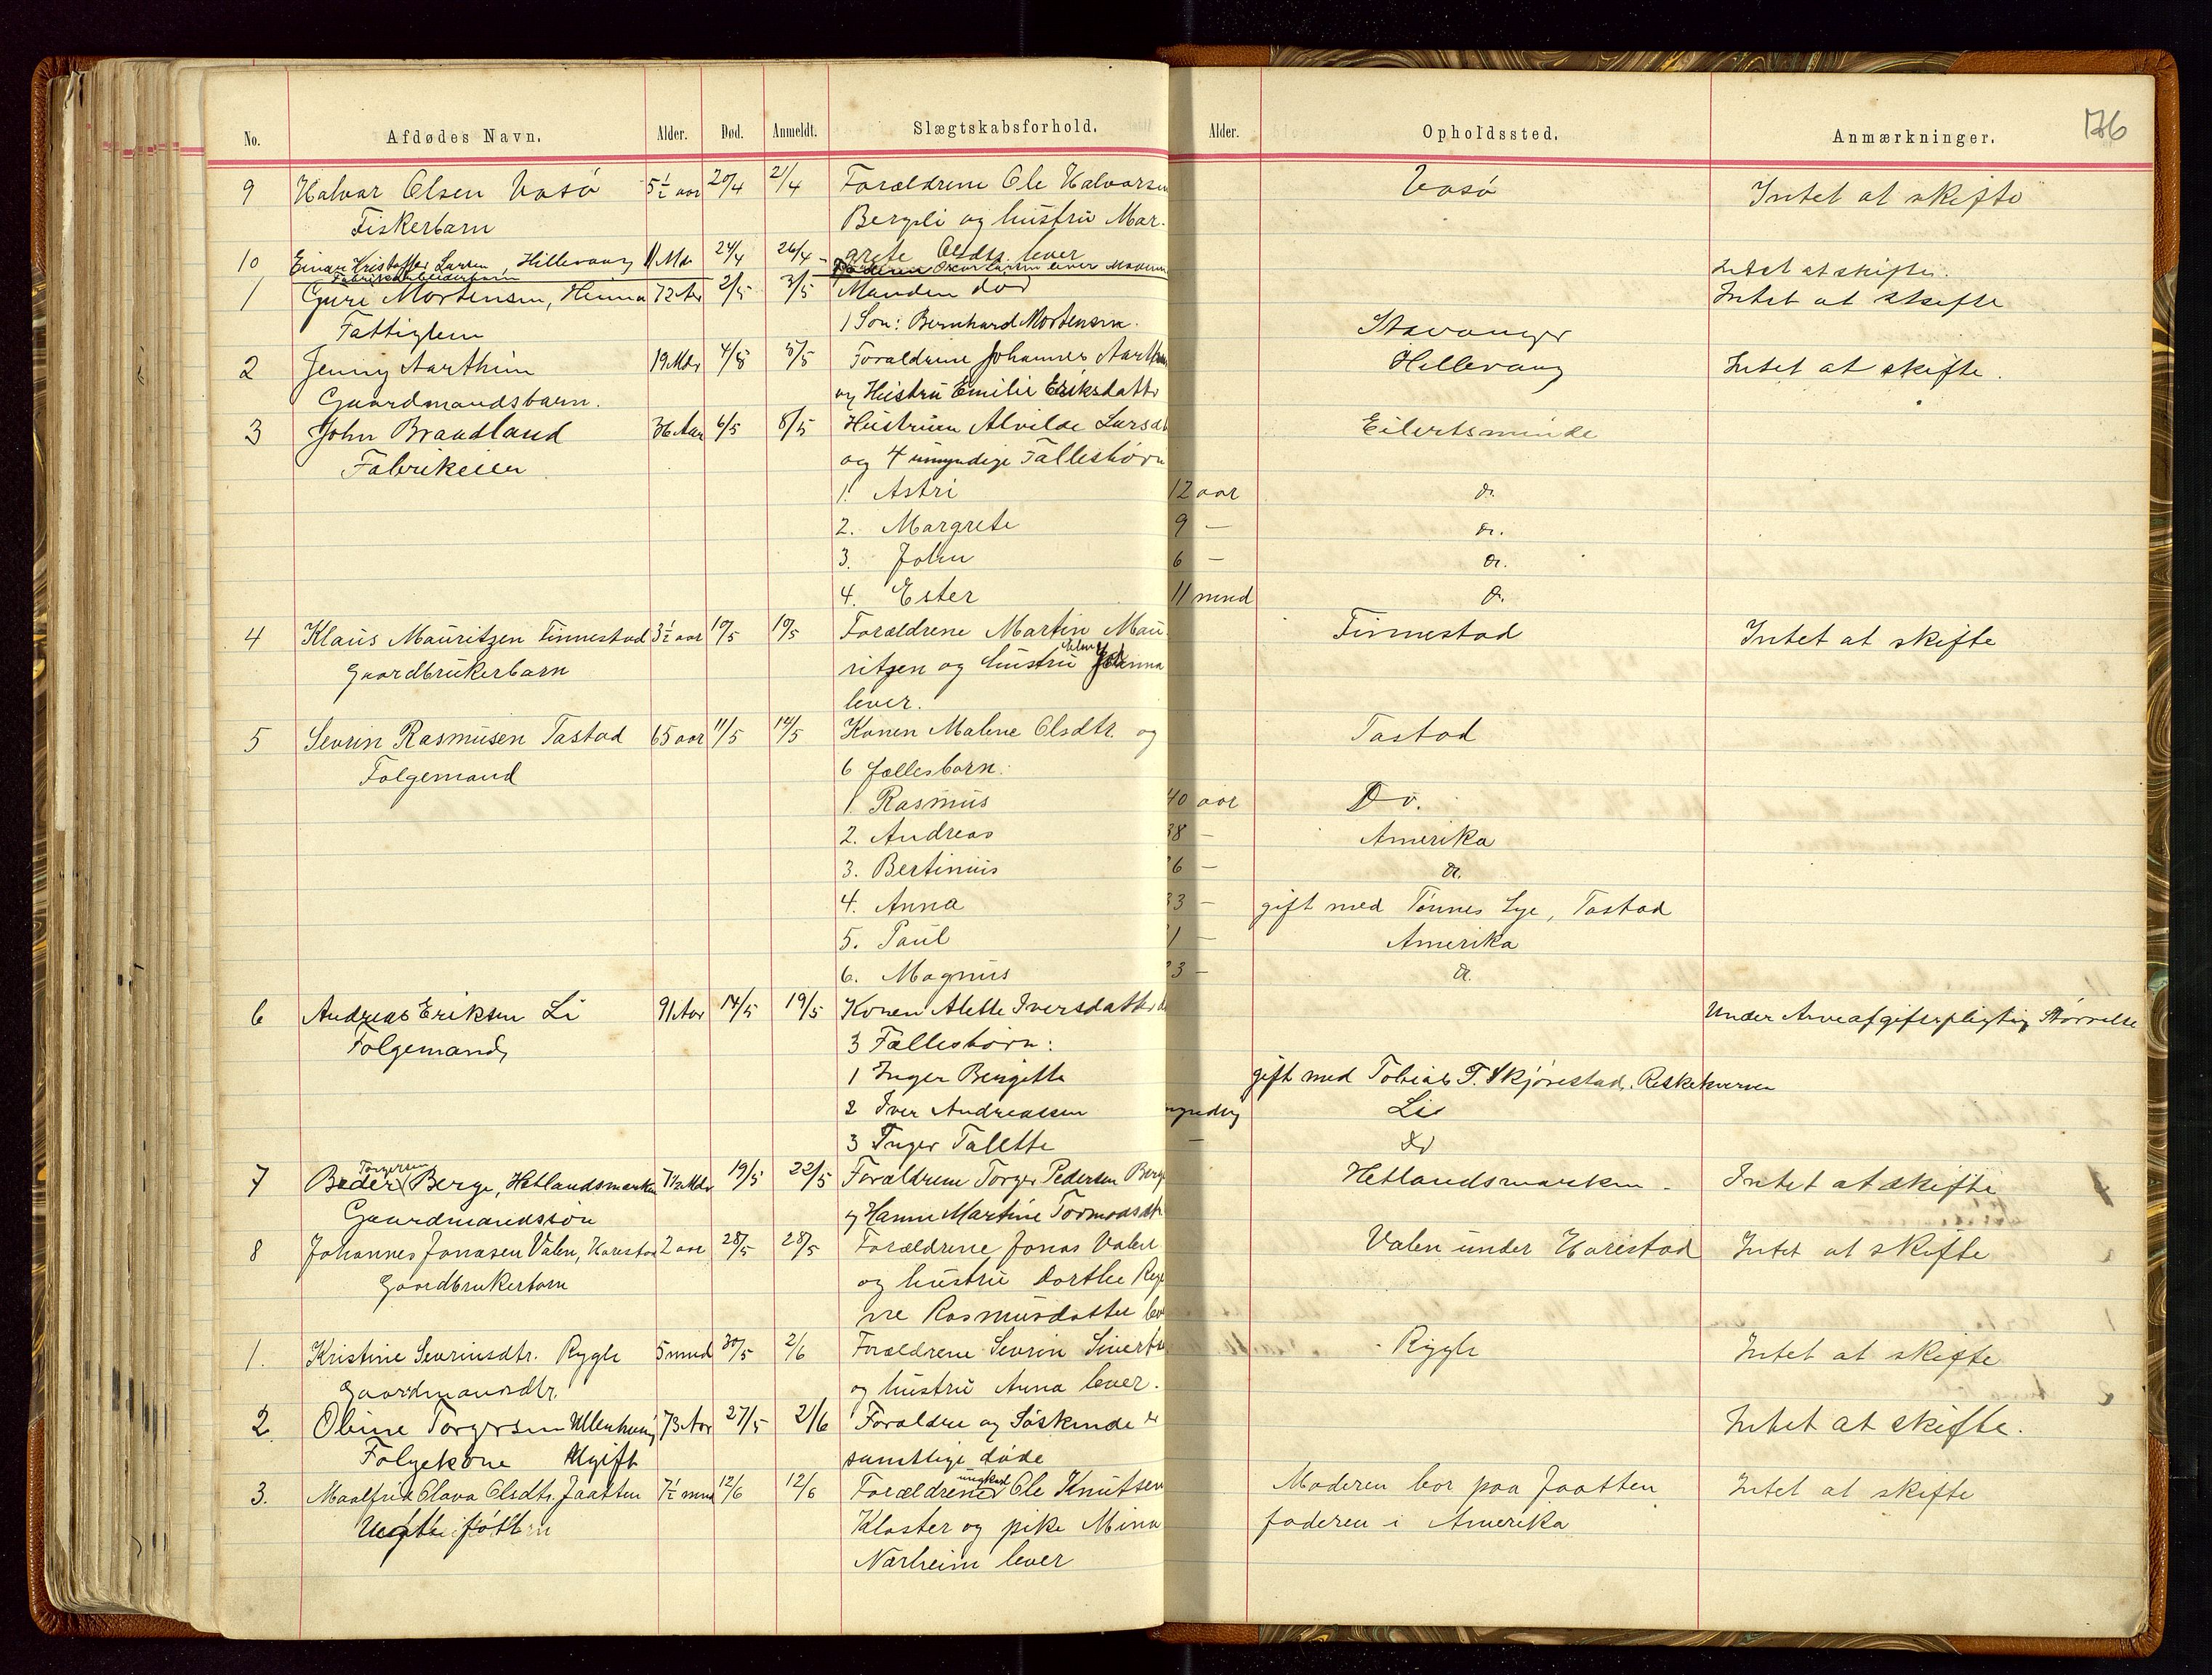 No. Afdødes Navn. Alder. Død. Anmeldt. Slægtskabsforhold. Alder. Opholdssted. Anmærkninger. 176
9 Halvar Olsen Vasø 5½ aar 20/4 21/4 Forældrene Ole Halvorsen Vasø Intet at skifte
Fiskerbarn Bergeli og hustru Mar-
grete Olsdtr. lever
10 Einar Kristoffer Larsen, Hillevaag 11 Mdr 24/4 26/4 Oscar Larsen lever Intet at skifte.
Fabrikarbeiderbarn
1 Guri Mortensen, Hinna 72 Aar 2/5 3/5 Manden død Intet at skifte
Fattiglem 1 Søn: Bernhard Mortensen. Stavanger
2 Jenny Aarthun 19 Mdr 4/5 5/5 Forældrene Johannes Aarthun Hillevaag Intet at skifte.
Gaardmandsbarn. og Hustru Emilie Eriksdatter
3 John Braadland 36 Aar 6/5 8/5 Hustruen Alvilde Larsdt Eilertsminde
Fabrikeier og 4 umyndige Fællesbørn
1. Astri 12 aar do.
2. Margrete 9 — do.
3. John 6 — do.
4. Ester 11 mnd do.
4 Klaus Mauritzen Finnestad 3½ aar 10/5 10/5 Forældrene Martin Mau- Finnestad Intet at skifte
Gaardbrukerbarn ritzen og hustru
lever.
5 Sevrin Rasmusen Tastad 65 aar 11/5 14/5 Konen Malene Olsdtr. og Tastad
Folgemand 6 fællesbarn:
1. Rasmus 40 aar Do.
2. Andreas 38 — Amerika
3. Bertinius 6 — do.
4. Anna 33 — gift med Tønnes Lye, Tastad
5. Paul 1 — Amerika
6. Magnus 3 — do.
6 Andreas Eriksen Li 91 Aar 14/5 19/5 Konen Alette Iversdatter Under Arveafgiftspligtig Størrelse
Folgemand, 3 Fællesbørn:
1 Inger Bergitte gift med Tobias T. Skjørestad, Riskekvernen
2 Iver Andreassen myndig Li
3 Inger Talette — do
7 Peder Torgersen Berge, Hetlandsmarken 7½ Mdr 19/5 22/5 Forældrene Torger Pedersen Berge Hetlandsmarken Intet at skifte
Gaardmandssøn og Hanne Martine Tormodsdtr
8 Johannes Jonasen Valen, Harestad 2 aar 28/5 28/5 Forældrene Jonas Valen Valen under Harestad Intet at skifte
Gaardbrukerbarn og hustru Dorthe Reg
ine Rasmusdatter lev
1. Kristine Sevrinsdtr. Rygh 5 mnd 30/5 2/6 Forældrene Sevrin Sivertse Rygh Intet at skifte
Gaardmandsdtr. og hustru Anna lever.
2. Oline Torgersen Ullenhaug 73 Aar 27/5 2/6 Foraldre og Søskende er Intet at skifte.
Folgekone Ugift samtlige døde
3. Maalfrid Olava Olsdtr. Jaatten 7½ mnd 12/6 12/6 Forældrene ungkarl Ole Knutsen Moderen bor paa Jaatten, Intet at skifte
Uegte født Kloster og pike Mina faderen i Amerika
Nærheim lever